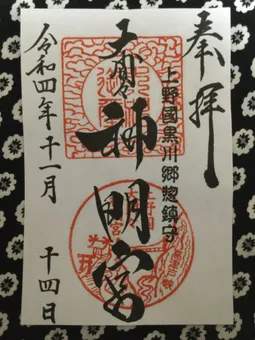 奉拝
上野國黒川郷惣鎮守
神明宮
令和四年十一月
十四日